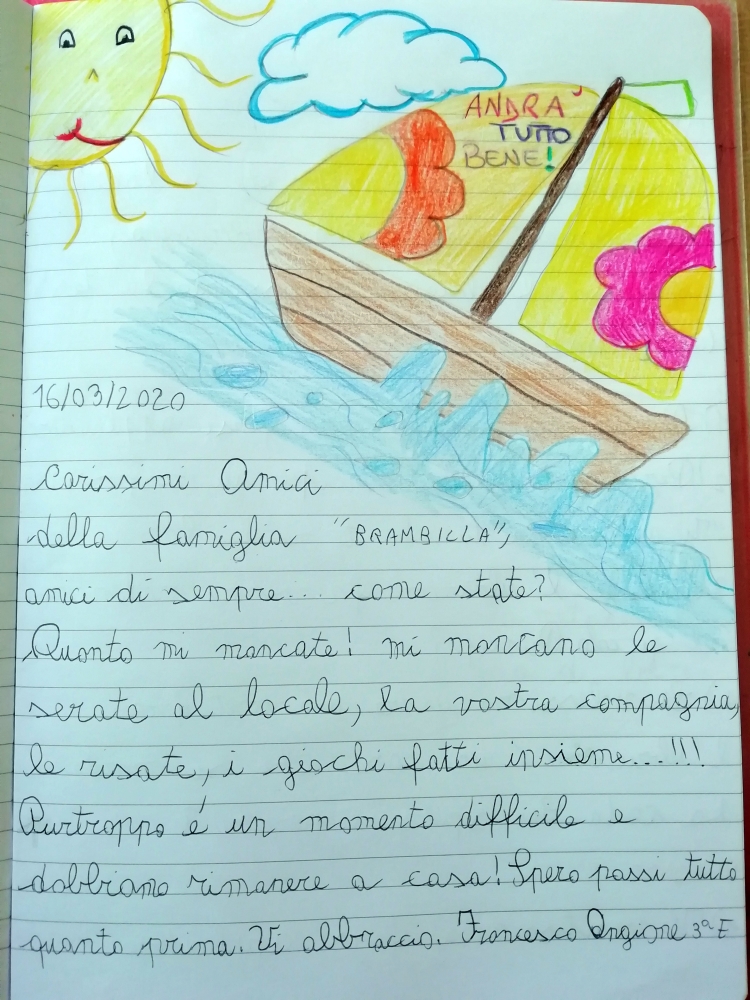 ANDRA'
TUTTO
BENE!
16/03/2020
Carissimi Amici
della famiglia "BRAMBILLA",
amici di sempre... come state?
Quanto mi mancate! mi mancano le
serate al locale, la vostra compagnia,
le risate, i giochi fatti insieme...!!!
Purtroppo é un momento difficile e
dobbiamo rimanere a casa! Spero passi tutto
quanto prima. Vi abbraccio. Francesco Angione 3ª E